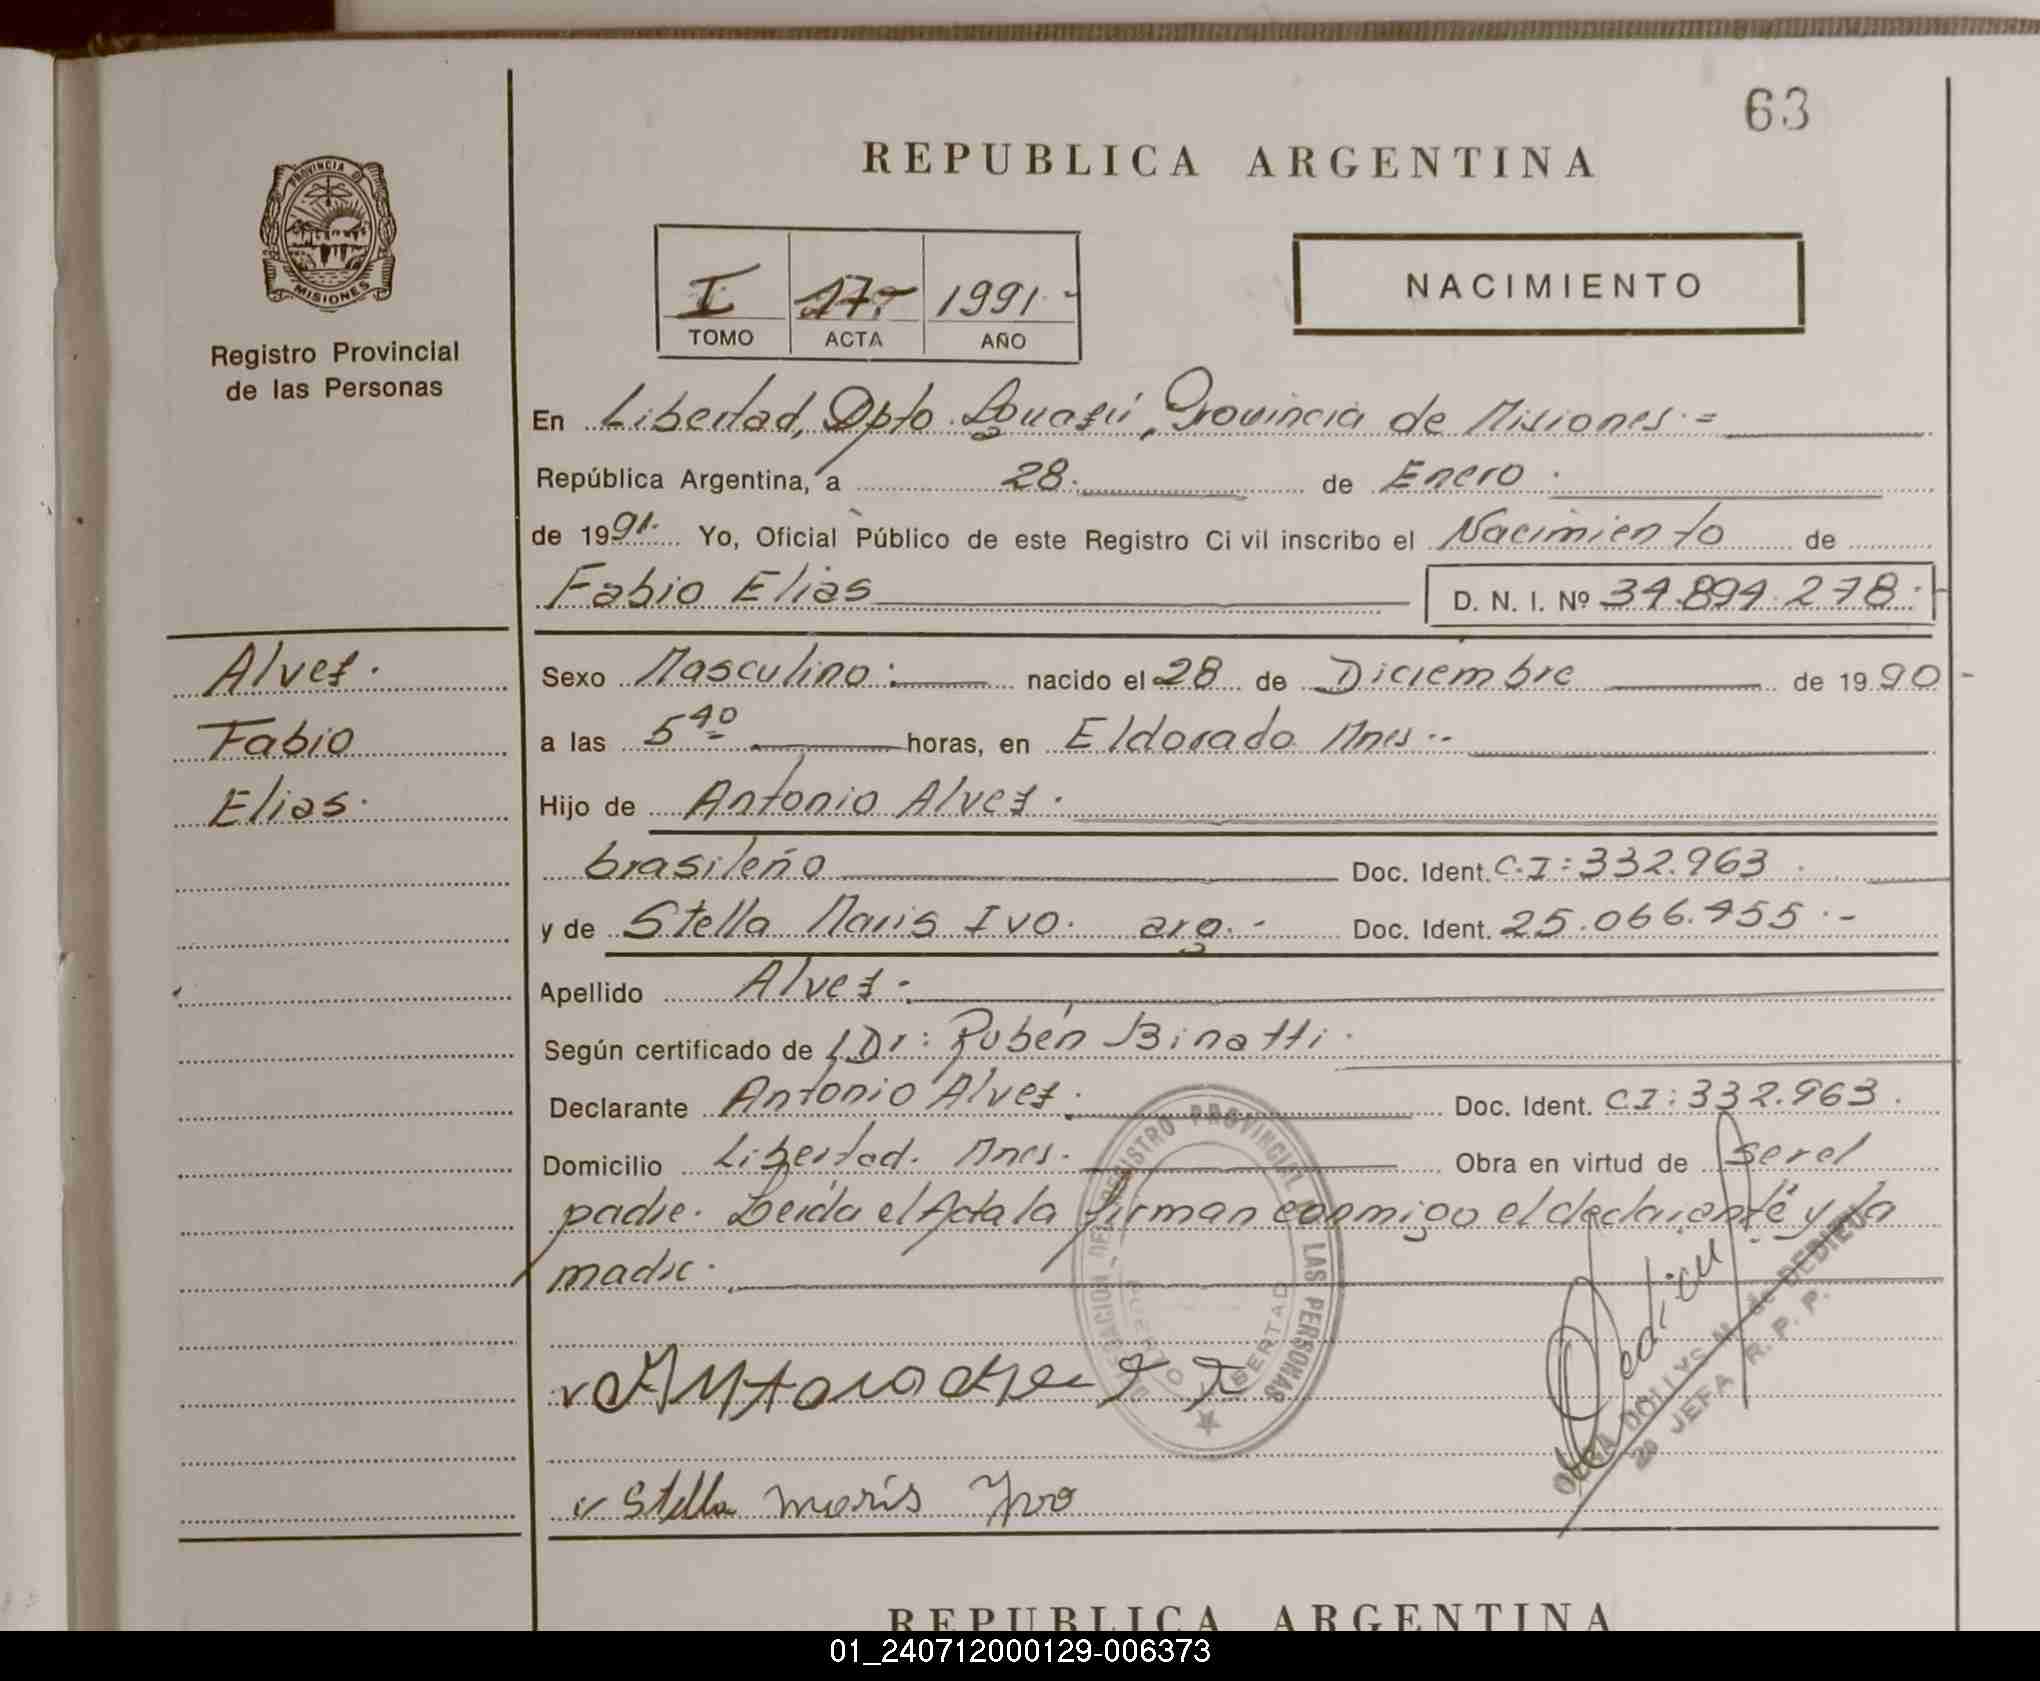 63
REPUBLICA ARGENTINA
PROVINCIA D
MISIONES
Registro Provincial
de las Personas
I 17.- 1991.-
TOMO ACTA AÑO
NACIMIENTO
En Libertad, Dpto. Iguazú, Provincia de Misiones.=
República Argentina, a 28. de Enero.
de 1991. Yo, Oficial Público de este Registro Ci vil inscribo el Nacimiento de
Fabio Elias D. N. I. Nº 34.894.278.-
Alvez.
Fabio
Elias.
Sexo Masculino: nacido el 28 de Diciembre de 1990-
a las 5 40 horas, en Eldorado Mnes.-
Hijo de Antonio Alvez.
brasileño Doc. Ident. C.I: 332.963.
y de Stella Maris Ivo. arg.- Doc. Ident. 25.066.455.-
Apellido Alvez.-
Según certificado de Dr: Rubén Binatti.
Declarante Antonio Alvez. Doc. Ident. CI: 332.963.
Domicilio Libertad. Mnes. Obra en virtud de ser el
padre. Leida el Acta la firman conmigo el declarante y la
madre.
DELEGACION DEL REGISTRO PROVINCIAL DE LAS PERSONAS
PUERTO LIBERTAD
OLGA DOLLYS M. de DEDIEU
2a JEFA R. P. P.
Stella maris Ivo
REPUBLICA ARGENTINA
01_240712000129-006373